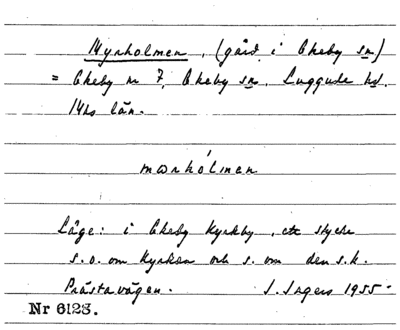 Myrholmen, (gård i Ekeby sn)
= Ekeby nr 7, Ekeby sn, Luggude hd.
Mhs län.
mørhólmen
Läge: i Ekeby Kyrkby, ett stycke
s.o. om Kyrkan och s. om den s.k.
Prästavägen. J. Ingers 1955
Nr 6128.